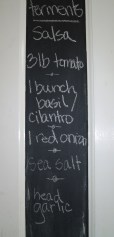 ferments
Salsa
3lb tomato
1 bunch
basil/
cilantro
1 red onion
sea salt
1 head
garlic